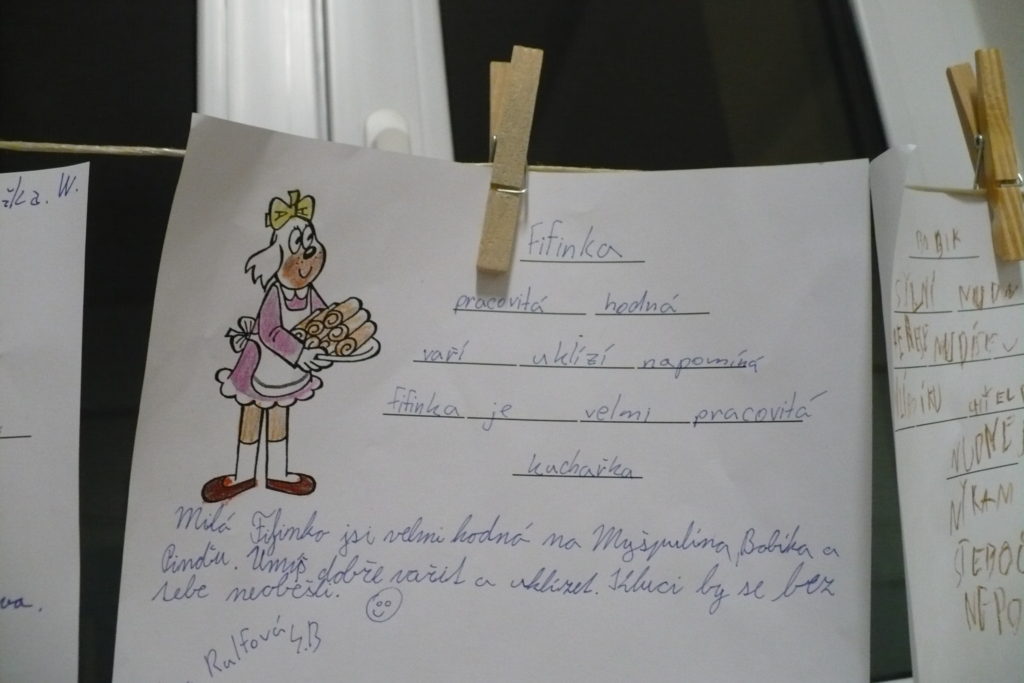 W.
Fifinka
pracovitá hodná
vaří uklízí napomíná
Fifinka je velmi pracovitá
kuchařka
Milá Fifinko jsi velmi hodná na Myšpulína, Bobíka a
Pinďu. Umíš dobře vařit a uklízet. Kluci by se bez
tebe neoběšli.
Ralfová 4.B
BOBÍK
SILNÍ
NUDNÉ